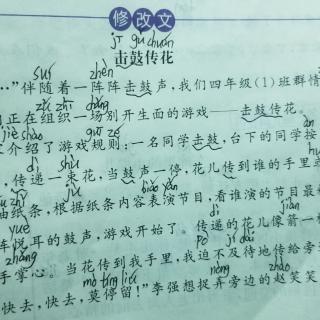 修改文
jī gǔ chuán
击鼓传花
suí zhèn
…”伴随着一阵阵击鼓声，我们四年级（1）班群情
zǔ zhī chǎng
正在组织一场别开生面的游戏——击鼓传花。
jiè shào guī zé
介绍了游戏规则：一名同学击鼓，台下的同学按
dì shù
传递一束花，当鼓声一停，花儿传到谁的手里
biǎo yǎn
纸条，根据纸条内容表演节目，看谁演的节目最
yuè dì jiàn
悦耳的鼓声，游戏开始了。传递的花儿像箭一
zhǎng pò jí dài
手掌心。当花传到我手里，我迫不及待地传给旁
mò tíng liú nòng zhào
快去，快去，莫停留！”李强想捉弄旁边的赵笑笑